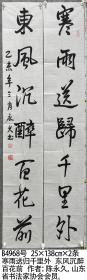 寒雨送归千里外
東風沉醉百花前
乙未年三月永久书
B4968号 25×138cm×2条
寒雨送归千里外 东风沉醉
百花前 作者：陈永久，山东
省书法家协会会员。